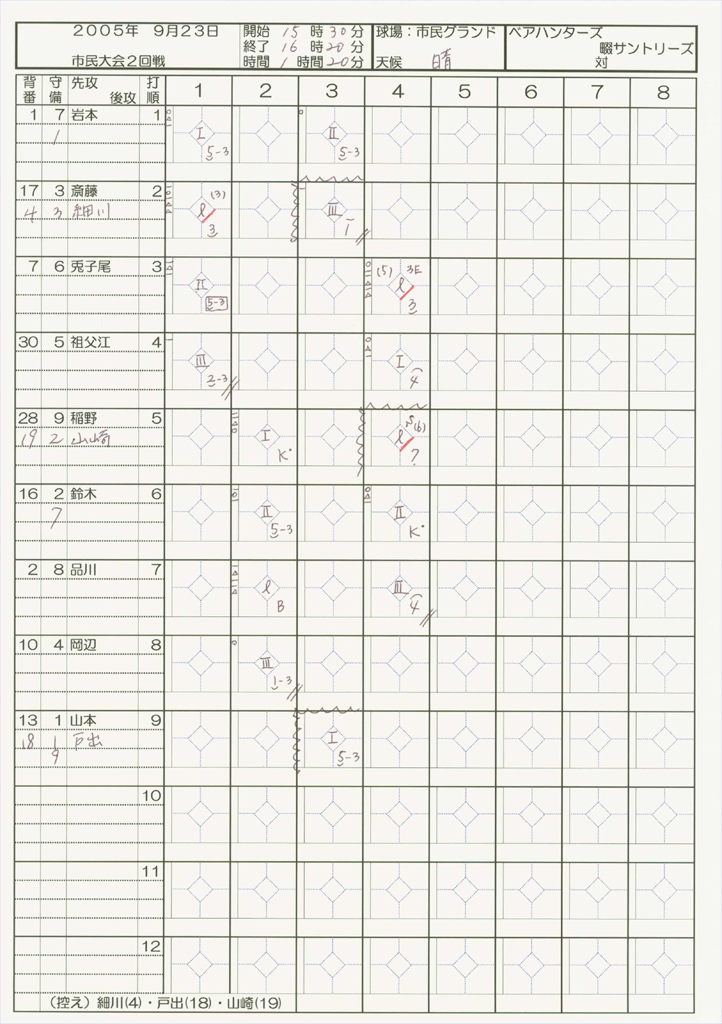 2005年 9月23日
市民大会2回戦
開始 15 時 30 分
終了 16 時 20 分
時間 1 時間 20 分
球場：市民グランド
天候 晴
ベアハンターズ
畷サントリーズ
対
背番 守備 先攻 後攻 打順 1 2 3 4 5 6 7 8
1 7 岩本 1
1
I 5-3
II 5-3
17 3 斎藤 2
4 3 細川
l (3) 3
III 1
7 6 兎子尾 3
II 5-3
(5) 3E l 3
30 5 祖父江 4
III 2-3
I 4
28 9 稲野 5
19 2 山崎
I K
l S(6) ?
16 2 鈴木 6
7
II 5-3
II K
2 8 品川 7
l B
III 4
10 4 岡辺 8
III 1-3
13 1 山本 9
18 1 戸出
9
I 5-3
10
11
12
（控え）細川(4)・戸出(18)・山崎(19)